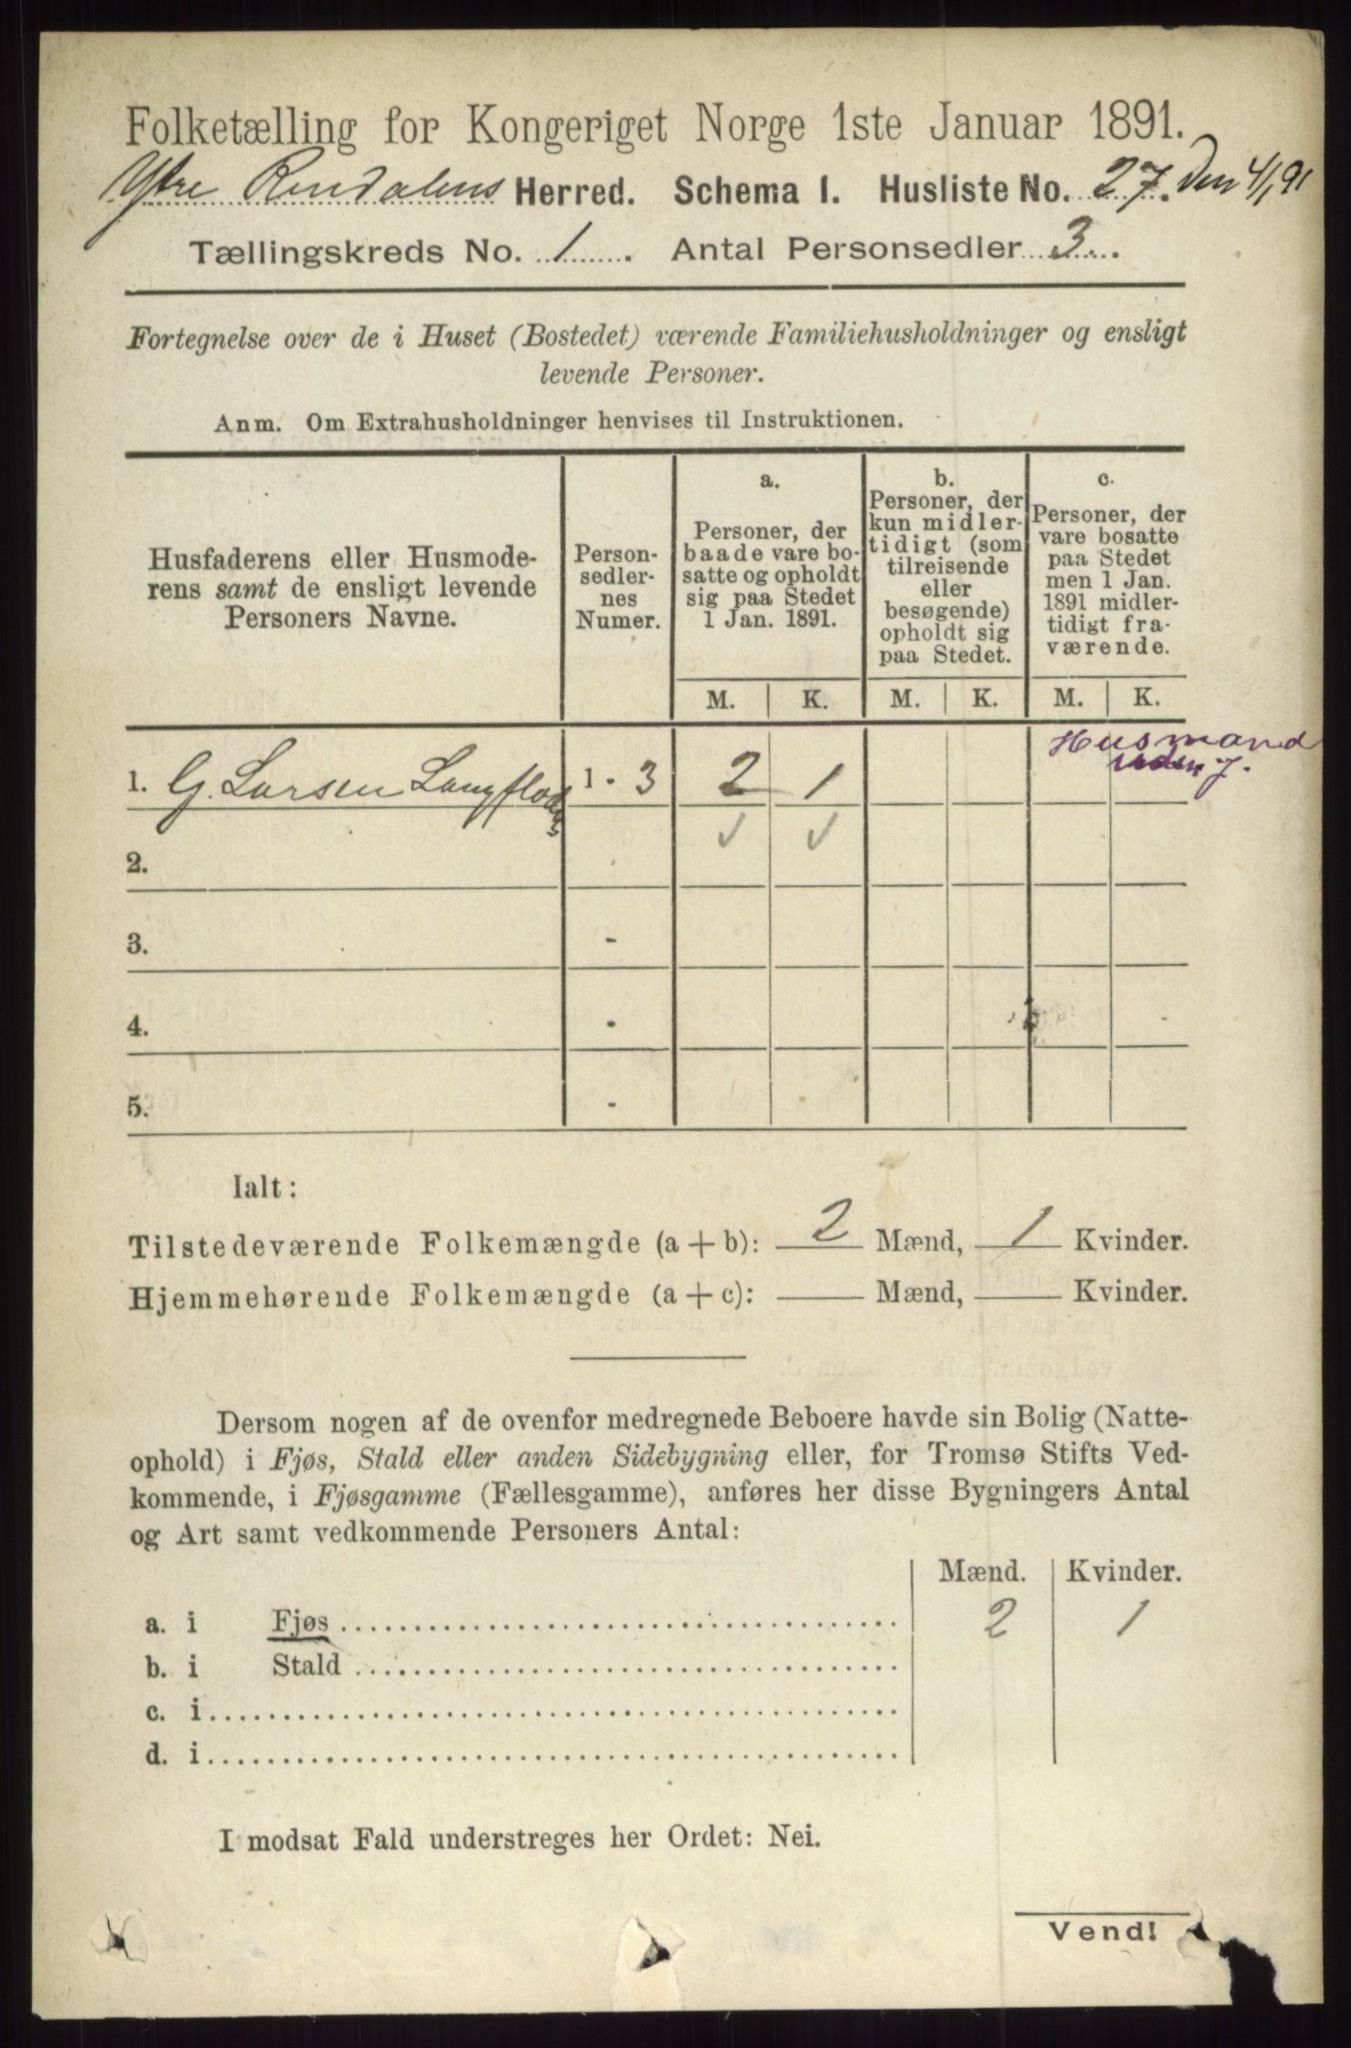 Folketælling for Kongeriget Norge 1ste Januar 1891.
Ytre Rendalens Herred. Schema I. Husliste No. 27. den 4/1 91
Tællingskreds No. 1. Antal Personsedler 3.
Fortegnelse over de i Huset (Bostedet) værende Familiehusholdninger og ensligt
levende Personer.
Anm. Om Extrahusholdninger henvises til Instruktionen.
Husfaderens eller Husmode-
rens samt de ensligt levende
Personers Navne.
Person-
sedler-
nes
Numer.
a.
Personer, der
baade vare bo-
satte og opholdt
sig paa Stedet
1 Jan. 1891.
b.
Personer, der
kun midler-
tidigt (som
tilreisende
eller
besøgende)
opholdt sig
paa Stedet.
c.
Personer, der
vare bosatte
paa Stedet
men 1 Jan.
1891 midler-
tidigt fra-
værende.
M. K. M. K. M. K.
Husmand
uden J.
1. G. Larsen Langfloden 1 - 3 2 1
2.
3. -
4. -
5. -
Ialt:
Tilstedeværende Folkemængde (a + b): 2 Mænd, 1 Kvinder.
Hjemmehørende Folkemængde (a + c): Mænd, Kvinder.
Dersom nogen af de ovenfor medregnede Beboere havde sin Bolig (Natte-
ophold) i Fjøs, Stald eller anden Sidebygning eller, for Tromsø Stifts Ved-
kommende, i Fjøsgamme (Fællesgamme), anføres her disse Bygningers Antal
og Art samt vedkommende Personers Antal:
Mænd. Kvinder.
a. i Fjøs 2 1
b. i Stald
c. i
d. i
I modsat Fald understreges her Ordet: Nei.
Vend!